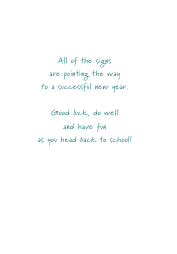 All of the signs
are pointing the way
to a successful new year.
Good luck, do well
and have fun
as you head back to school!